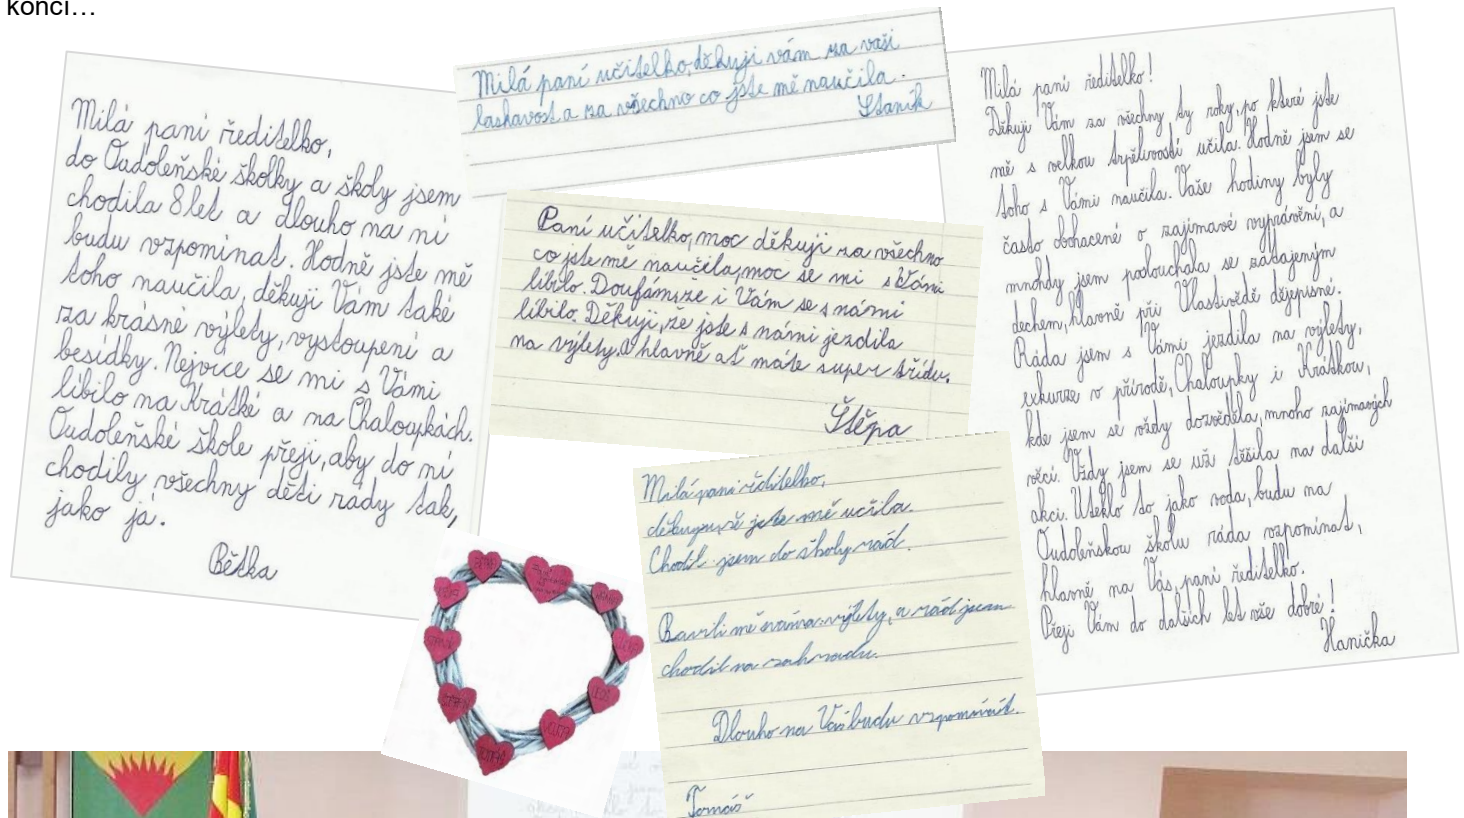 končí…
Milá paní ředitelko,
do Oudoleňské školky a školy jsem
chodila 8 let a dlouho na ni
budu vzpomínat. Hodně jste mě
toho naučila, děkuji Vám také
za krásné výlety, vystoupení a
besídky. Nejvíce se mi s Vámi
líbilo na Krátké a na Chaloupkách.
Oudoleňské škole přeji, aby do ní
chodily všechny děti rády tak,
jako já.
Bětka
Milá paní učitelko, děkuji vám za vaši
laskavost a za všechno co jste mě naučila.
Staník
Paní učitelko, moc děkuji za všechno
co jste mě naučila, moc se mi s Vámi
líbilo. Doufám, že i Vám se s námi
líbilo. Děkuji, že jste s námi jezdila
na výlety a hlavně ať máte super třídu.
Štěpa
Milá paní ředitelko,
děkuju, že jste mě učila.
Chodil jsem do školy rád.
Bavili mě s váma výlety, a rád jsem
chodil na zahradu.
Dlouho na Vás budu vzpomínat.
Tomáš
Milá paní ředitelko!
Děkuji Vám za všechny ty roky, po které jste
mě s velkou trpělivostí učila. Hodně jsem se
toho s Vámi naučila. Vaše hodiny byly
často obohacené o zajímavé vyprávění, a
mnohdy jsem poslouchala se zatajeným
dechem, hlavně při Vlastivědě dějepisné.
Ráda jsem s Vámi jezdila na výlety,
exkurze v přírodě, Chaloupky i Krátkou,
kde jsem se vždy dozvěděla, mnoho zajímavých
věcí. Vždy jsem se už těšila na další
akci. Uteklo to jako voda, budu na
Oudoleňskou školu ráda vzpomínat,
hlavně na Vás, paní ředitelko.
Přeji Vám do dalších let vše dobré!
Hanička